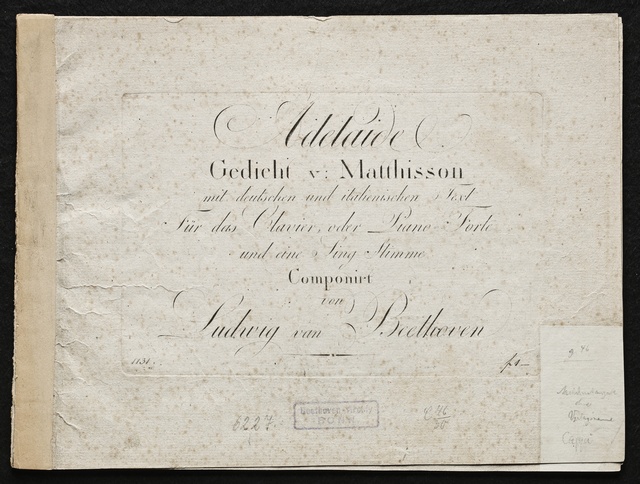 Adelaide
Gedicht v: Matthisson
mit deutschen und italienischen Text
Für das Clavier, oder Piano-Forte
und eine Sing Stimme
Componirt
von
Ludwig van Beethoven
1131.
f 1
6227.
Beethoven-
BONN
C 46
50
g. 46